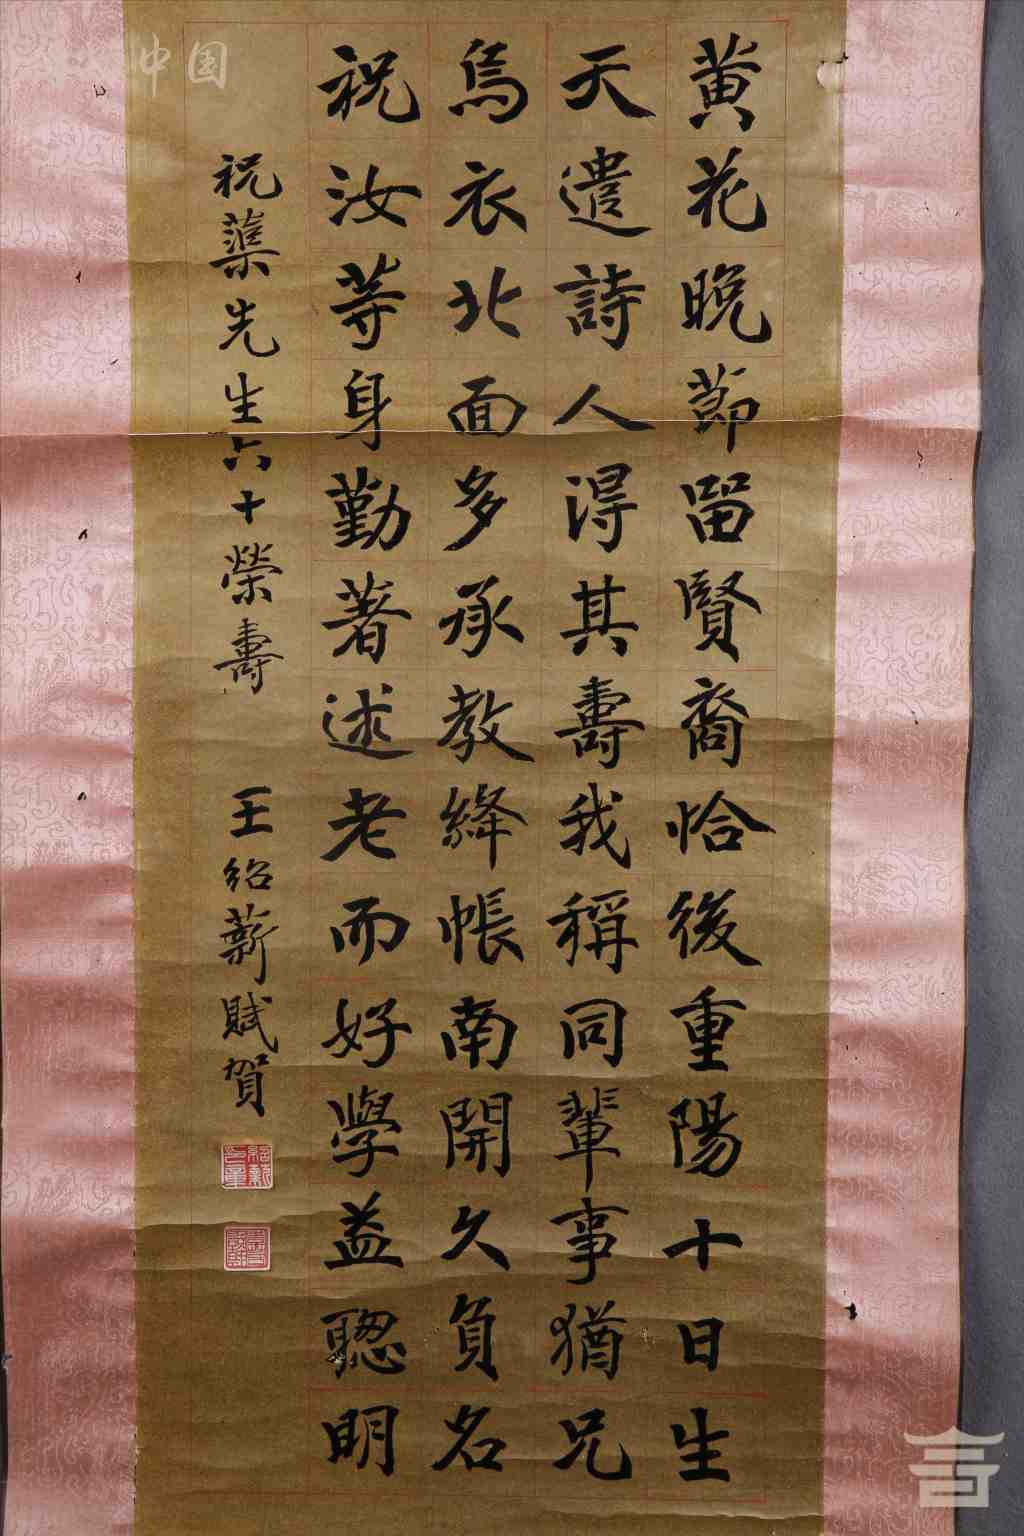 黄花晚節留賢裔恰後重陽十日生
天遣詩人得其壽我稱同輩事猶兄
烏衣北面多承教絳帳南開久負名
祝汝等身勤著述老而好學益聰明
祝蕖先生六十榮壽
王紹薪賦賀
中国